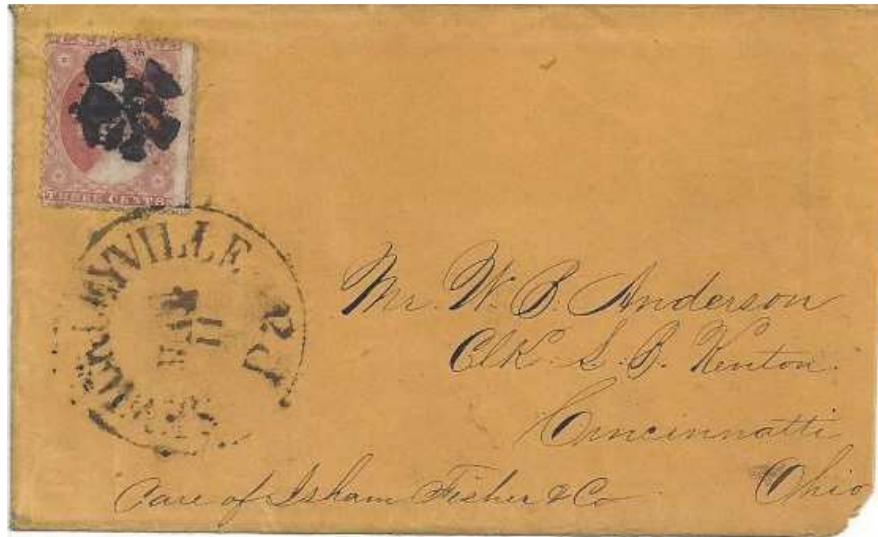 THREE CENTS
11
Mr. W. B. Anderson
Clk. S. B. Kenton.
Cincinnatti
Ohio
Care of Isham Fisher & Co